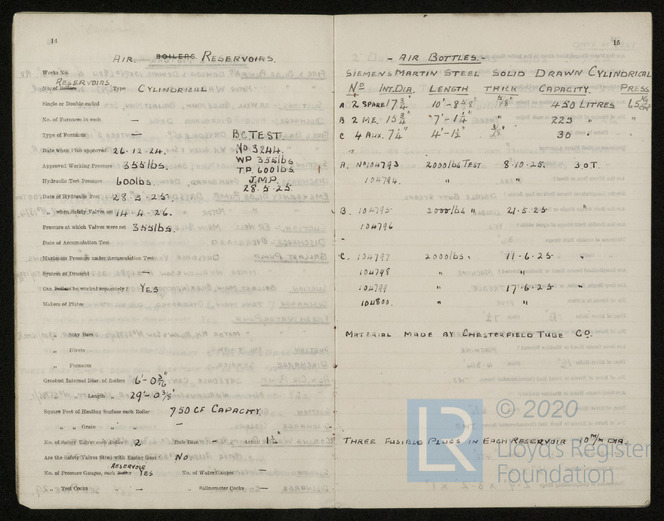 14
AIR BOILERS RESERVOIRS.
Works No.
RESERVOIRS
No. of Boilers Type CYLINDRICAL
Single or Double-ended
No. of Furnaces in each —
Type of Furnaces —
Date when Plan approved 26.12.24.
Approved Working Pressure 355 lbs.
Hydraulic Test Pressure 600 lbs.
Date of Hydraulic Test 28.5.25.
" when Safety Valves set 14.4.26.
Pressure at which Valves were set 355 lbs.
B.C. TEST.
No. 3244.
WP 355 lbs
T.P. 600 lbs
J.M.P.
28.5.25
Date of Accumulation Test
Maximum Pressure under Accumulation Test
System of Draught —
Can Boilers be worked separately? YES
Makers of Plates
" Stay Bars
" Rivets
" Furnaces
Greatest Internal Diam. of Boilers 6'-0 3/16"
" " Length " 29'-0 3/8"
Square Feet of Heating Surface each Boiler 750 CF CAPACITY
" " Grate " " —
No. of Safety Valves each Boiler 2 Rule Diam. — Actual 1 1/2"
Are the Safety Valves fitted with Easing Gear? NO
RESERVOIR
No. of Pressure Gauges, each Boiler YES No. of Water Gauges —
" Test Cocks " — " Salinometer Cocks —
15
- AIR BOTTLES. -
SIEMENS MARTIN STEEL SOLID DRAWN CYLINDRICAL
No INT. DIA. LENGTH THICK CAPACITY. PRESS
A 2 SPARE 17 3/4" 10'-8 5/8" 450 LITRES
B 2 M.E. 15 3/4" 7'-1 1/4" " 225 "
C 4 AUX. 7 1/4" 4'-1 1/2" 30 "
A. No 104793 2000 lbs TEST 8.10.25. 30T.
104794. " " "
B. 104795 2000 lbs " 21.5.25 "
104796
C. 104797 2000 lbs " 11.6.25 "
104798 " "
104799 " 17.6.25 "
104800. " "
MATERIAL MADE BY CHESTERFIELD TUBE CO.
THREE FUSIBLE PLUGS IN EACH RESERVOIR 10 m/m DIA.
© 2020
LR
Lloyd's Register
Foundation